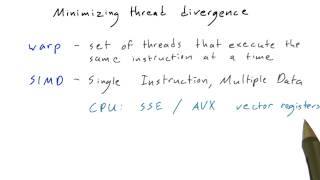 Minimizing thread divergence
warp - set of threads that execute the
same instruction at a time
SIMD - Single Instruction, Multiple Data
CPU: SSE / AVX vector registers